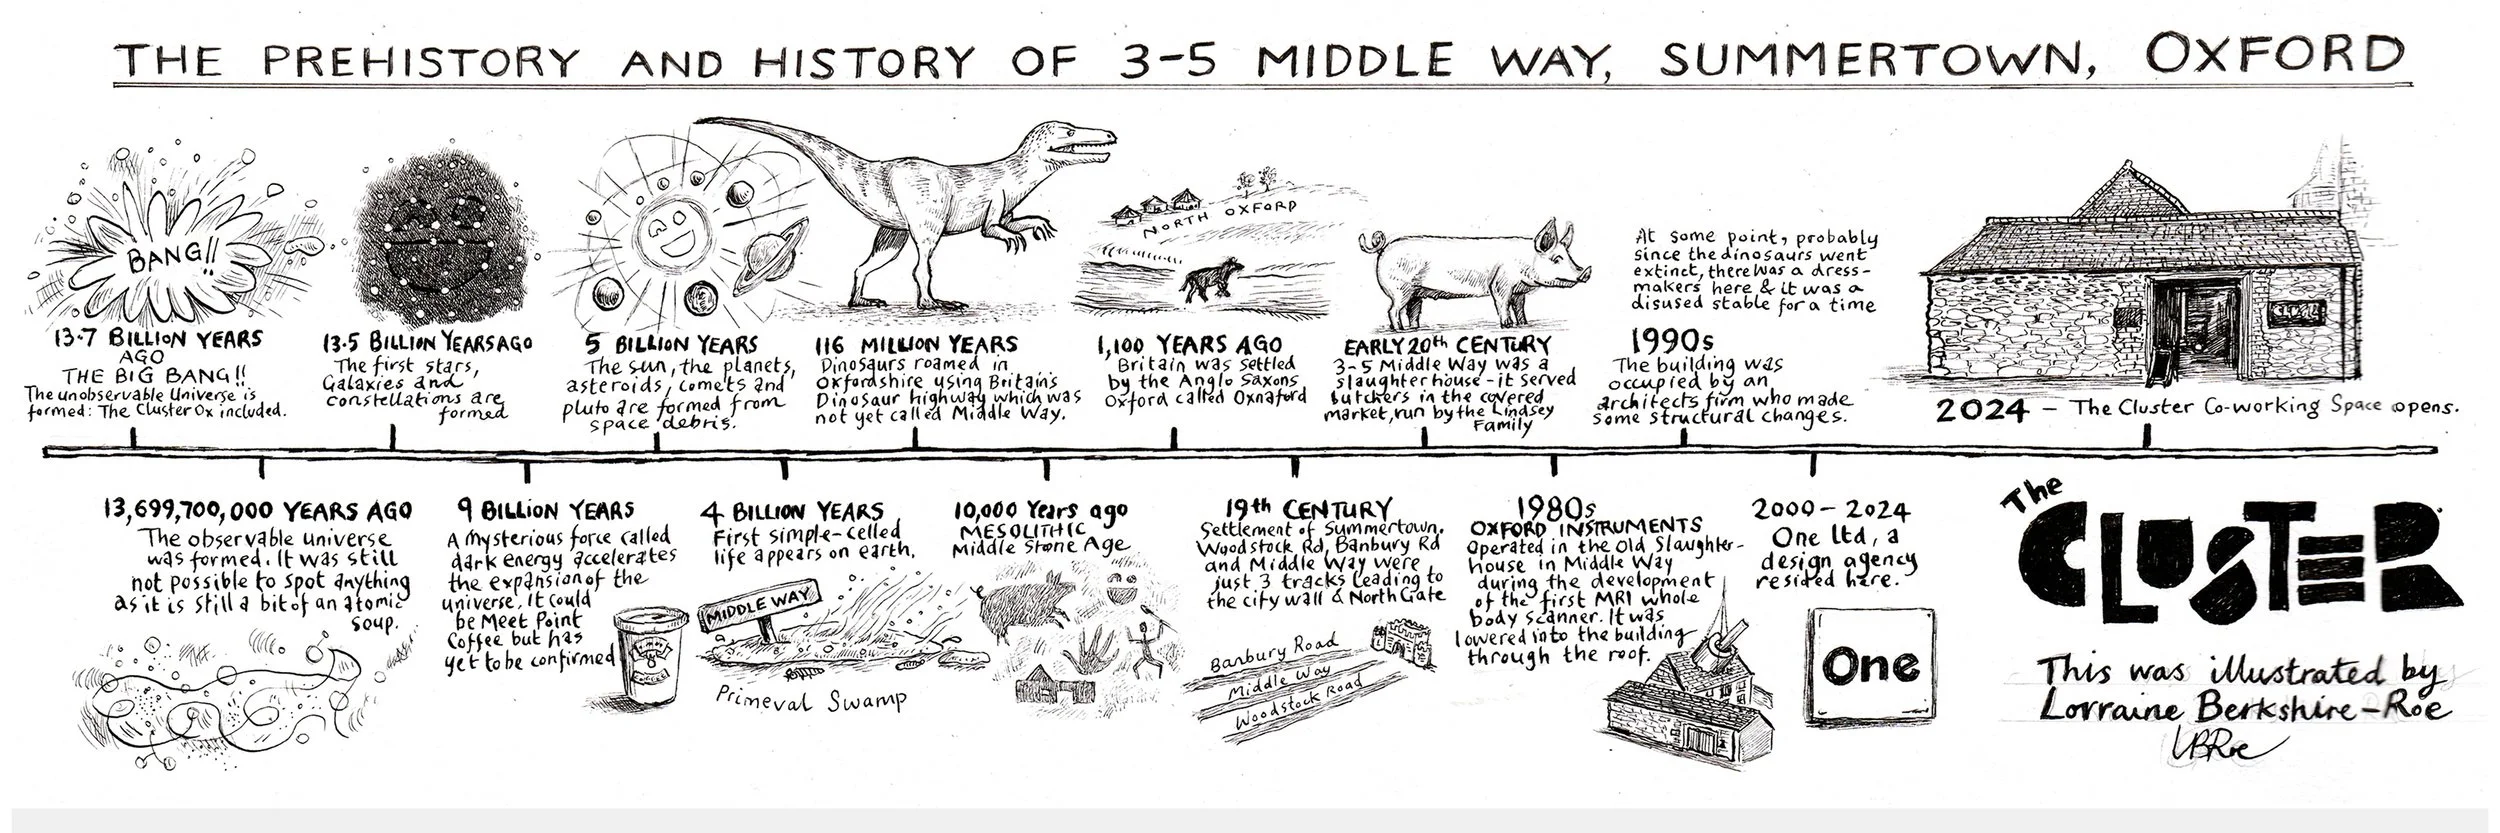 THE PREHISTORY AND HISTORY OF 3-5 MIDDLE WAY, SUMMERTOWN, OXFORD
BANG!!
13.7 BILLION YEARS
AGO
THE BIG BANG!!
The unobservable Universe is
formed: The Cluster Ox included.
13.5 BILLION YEARS AGO
The first stars,
Galaxies and
constellations are
formed
5 BILLION YEARS
The sun, the planets,
asteroids, comets and
pluto are formed from
space debris.
116 MILLION YEARS
Dinosaurs roamed in
Oxfordshire using Britain's
Dinosaur highway which was
not yet called Middle Way.
NORTH OXFORD
1,100 YEARS AGO
Britain was settled
by the Anglo Saxons
Oxford called Oxnaford
EARLY 20th CENTURY
3-5 Middle Way was a
slaughterhouse - it served
butchers in the covered
market, run by the Lindsey
Family
At some point, probably
since the dinosaurs went
extinct, there was a dress-
makers here & it was a
disused stable for a time
1990s
The building was
occupied by an
architects firm who made
some structural changes.
CLUSTER
2024 - The Cluster Co-working Space opens.
13,699,700,000 YEARS AGO
The observable universe
was formed. It was still
not possible to spot anything
as it is still a bit of an atomic
soup.
9 BILLION YEARS
A mysterious force called
dark energy accelerates
the expansion of the
universe. It could
be Meet Point
Coffee but has
yet to be confirmed
4 BILLION YEARS
First simple-celled
life appears on earth.
MIDDLE WAY
Primeval Swamp
10,000 Years ago
MESOLITHIC
Middle Stone Age
19th CENTURY
Settlement of Summertown.
Woodstock Rd, Banbury Rd
and Middle Way were
just 3 tracks leading to
the city wall & North Gate
Banbury Road
Middle Way
Woodstock Road
1980s
OXFORD INSTRUMENTS
Operated in the old Slaughter-
house in Middle Way
during the development
of the first MRI whole
body scanner. It was
lowered into the building
through the roof.
2009-2024
One ltd, a
design agency
resided here.
One
The
CLUSTER
This was illustrated by
Lorraine Berkshire-Roe
LBRoe